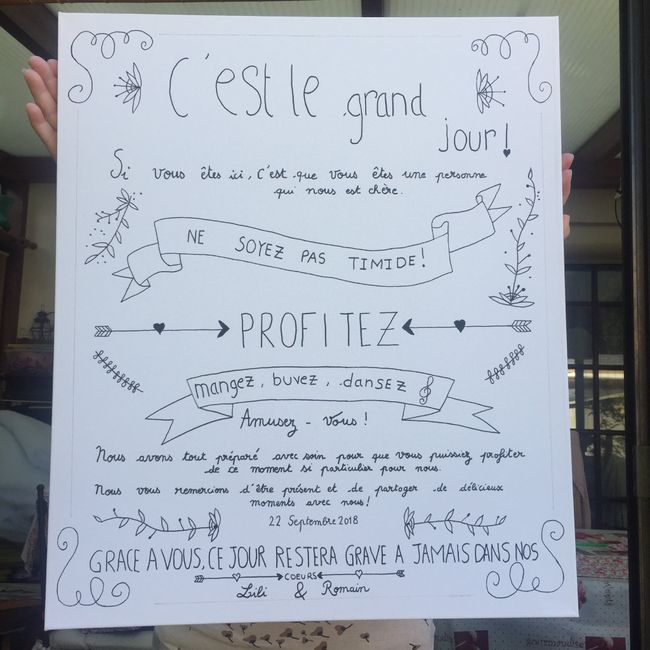 C'est le grand
jour!
Si vous êtes ici, c'est que vous êtes une personne
qui nous est chère.
NE SOYEZ PAS TIMIDE!
PROFITEZ
mangez, buvez, dansez
Amusez-vous!
Nous avons tout préparé avec soin pour que vous puissiez profiter
de ce moment si particulier pour nous.
Nous vous remercions d'être présent et de partager de délicieux
moments avec nous!
22 Septembre 2018
GRACE A VOUS, CE JOUR RESTERA GRAVE A JAMAIS DANS NOS
COEURS
Lili & Romain